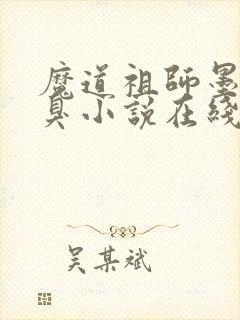 魔道祖師墨
臭小說在綫
吴某斌